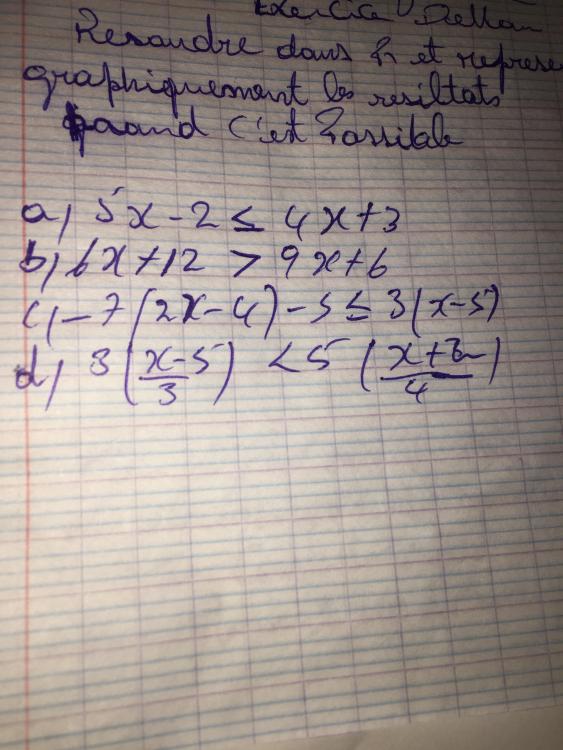 Exercice
Resoudre dans R et represe
graphiquement les resultats
quand c'est Possible
a) 5x-2 ≤ 4x+3
b) 6x+12 > 9x+6
c) -7(2x-4)-5 ≤ 3(x-5)
d) 3(x-5/3) < 5(x+2/4)